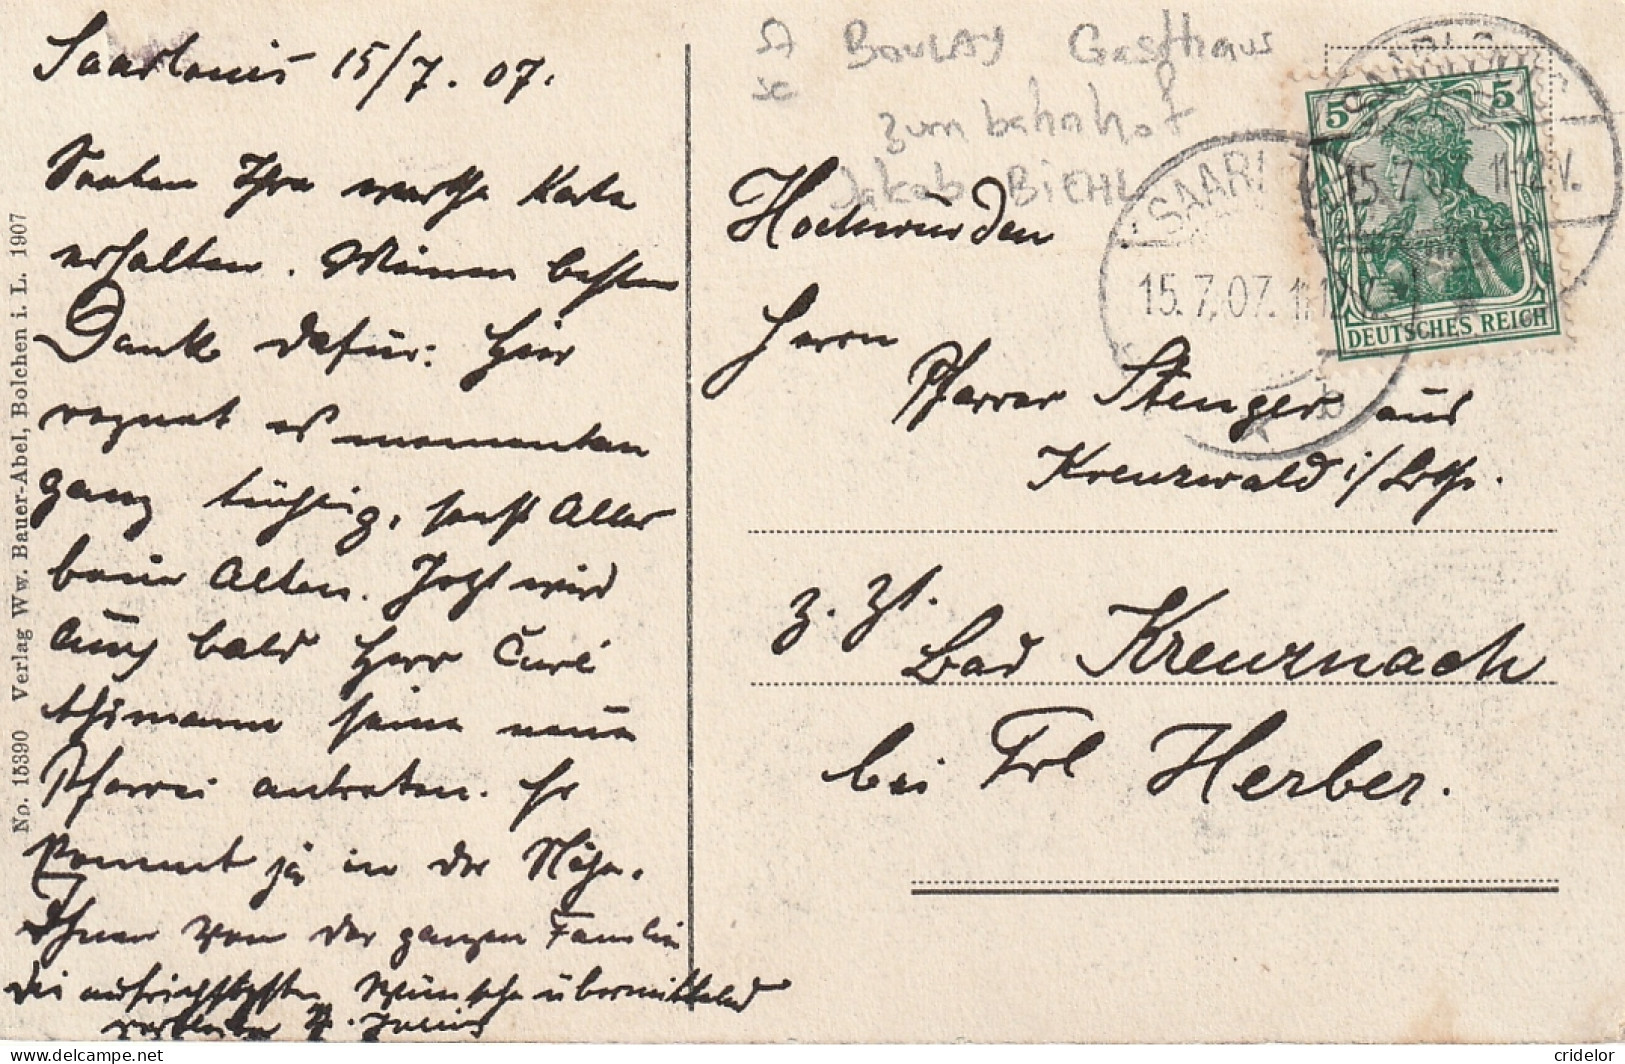 Saarlouis 15/7. 07.
Soeben Ihre werthe Karte
erhalten. Meinen besten
Dank dafür. Hier
regnet es momentan
ganz tüchtig, sonst Alles
beim Alten. Jetzt wird
auch bald Herr Curé
seine neue
Pfarrei antreten. Er
kommt ja in der Nähe.
Ihnen von der ganzen Familie
die aufrichtigsten Wünsche übermittelnd
verbleibe
No. 15390 Verlag Ww. Bauer-Abel, Bolchen i. L. 1907
BOULAY Gasthaus
zum bahnhof
Jakob BIEHL
5 5
DEUTSCHES REICH
SAARL
15.7.07. 11-12V.
Hochwürden
Herrn
Pfarrer Stenger aus
Kreuzwald i/Lothr.
z. Zt.
Bad Kreuznach
bei Frl Herber.
cridelor